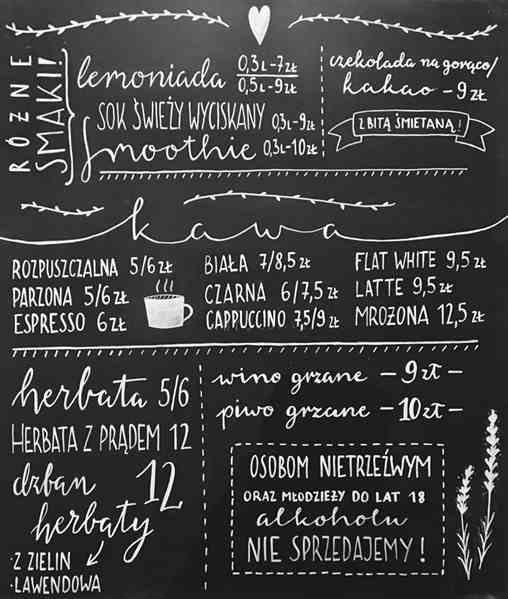 RÓŻNE SMAKI!
lemoniada 0,3L-7zł
0,5L-9zł
SOK ŚWIEŻY WYCISKANY 0,3L-9zł
Smoothie 0,3L-10zł
czekolada na gorąco/
kakao - 9 zł
Z BITĄ ŚMIETANĄ!
kawa
ROZPUSZCZALNA 5/6 zł
PARZONA 5/6 zł
ESPRESSO 6 zł
BIAŁA 7/8,5 zł
CZARNA 6/7,5 zł
CAPPUCCINO 7,5/9 zł
FLAT WHITE 9,5 zł
LATTE 9,5 zł
MROŻONA 12,5 zł
herbata 5/6
HERBATA Z PRĄDEM 12
dzban 12
herbaty
·Z ZIELIN
·LAWENDOWA
wino grzane -9 zł-
piwo grzane -10 zł-
OSOBOM NIETRZEŹWYM
ORAZ MŁODZIEŻY DO LAT 18
alkoholu
NIE SPRZEDAJEMY!